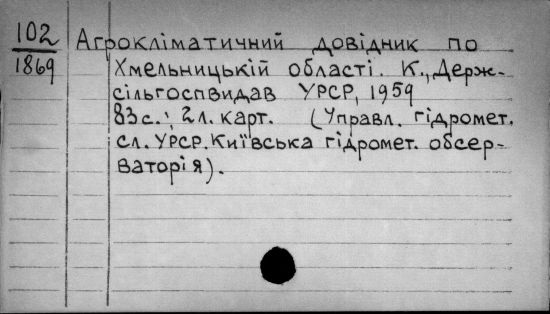 102
1869
Агрокліматичний довідник по
Хмельницькій області. К., Держ-
сільгоспвидав УРСР, 1959
83с.; 2л. карт. (Управл. гідромет.
сл. УРСР. Київська гідромет. обсер-
ваторія).